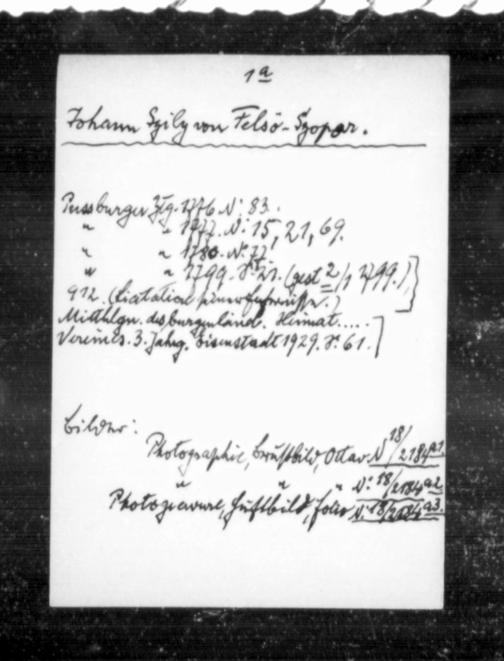 1a
Johann Szily von Felsö-Szopor.
Pressburger Ztg. 1776. N: 83.
" " 1777. N: 15, 21, 69.
" " 1780. N: 77.
" " 1799. S. 21. (gest 2/1 1799.)
912. (Licitation seiner
Mitthlgn. des burgenländ. Heimat.....
Vereines. 3. Jahrg. Eisenstadt 1929. S. 61.
Bilder:
Photographie, Brustbild, Octav N 18/2184 a1.
" " " N: 18/2184 a2.
Photogravure, Hüftbild, Folio N: 18/2184 a3.